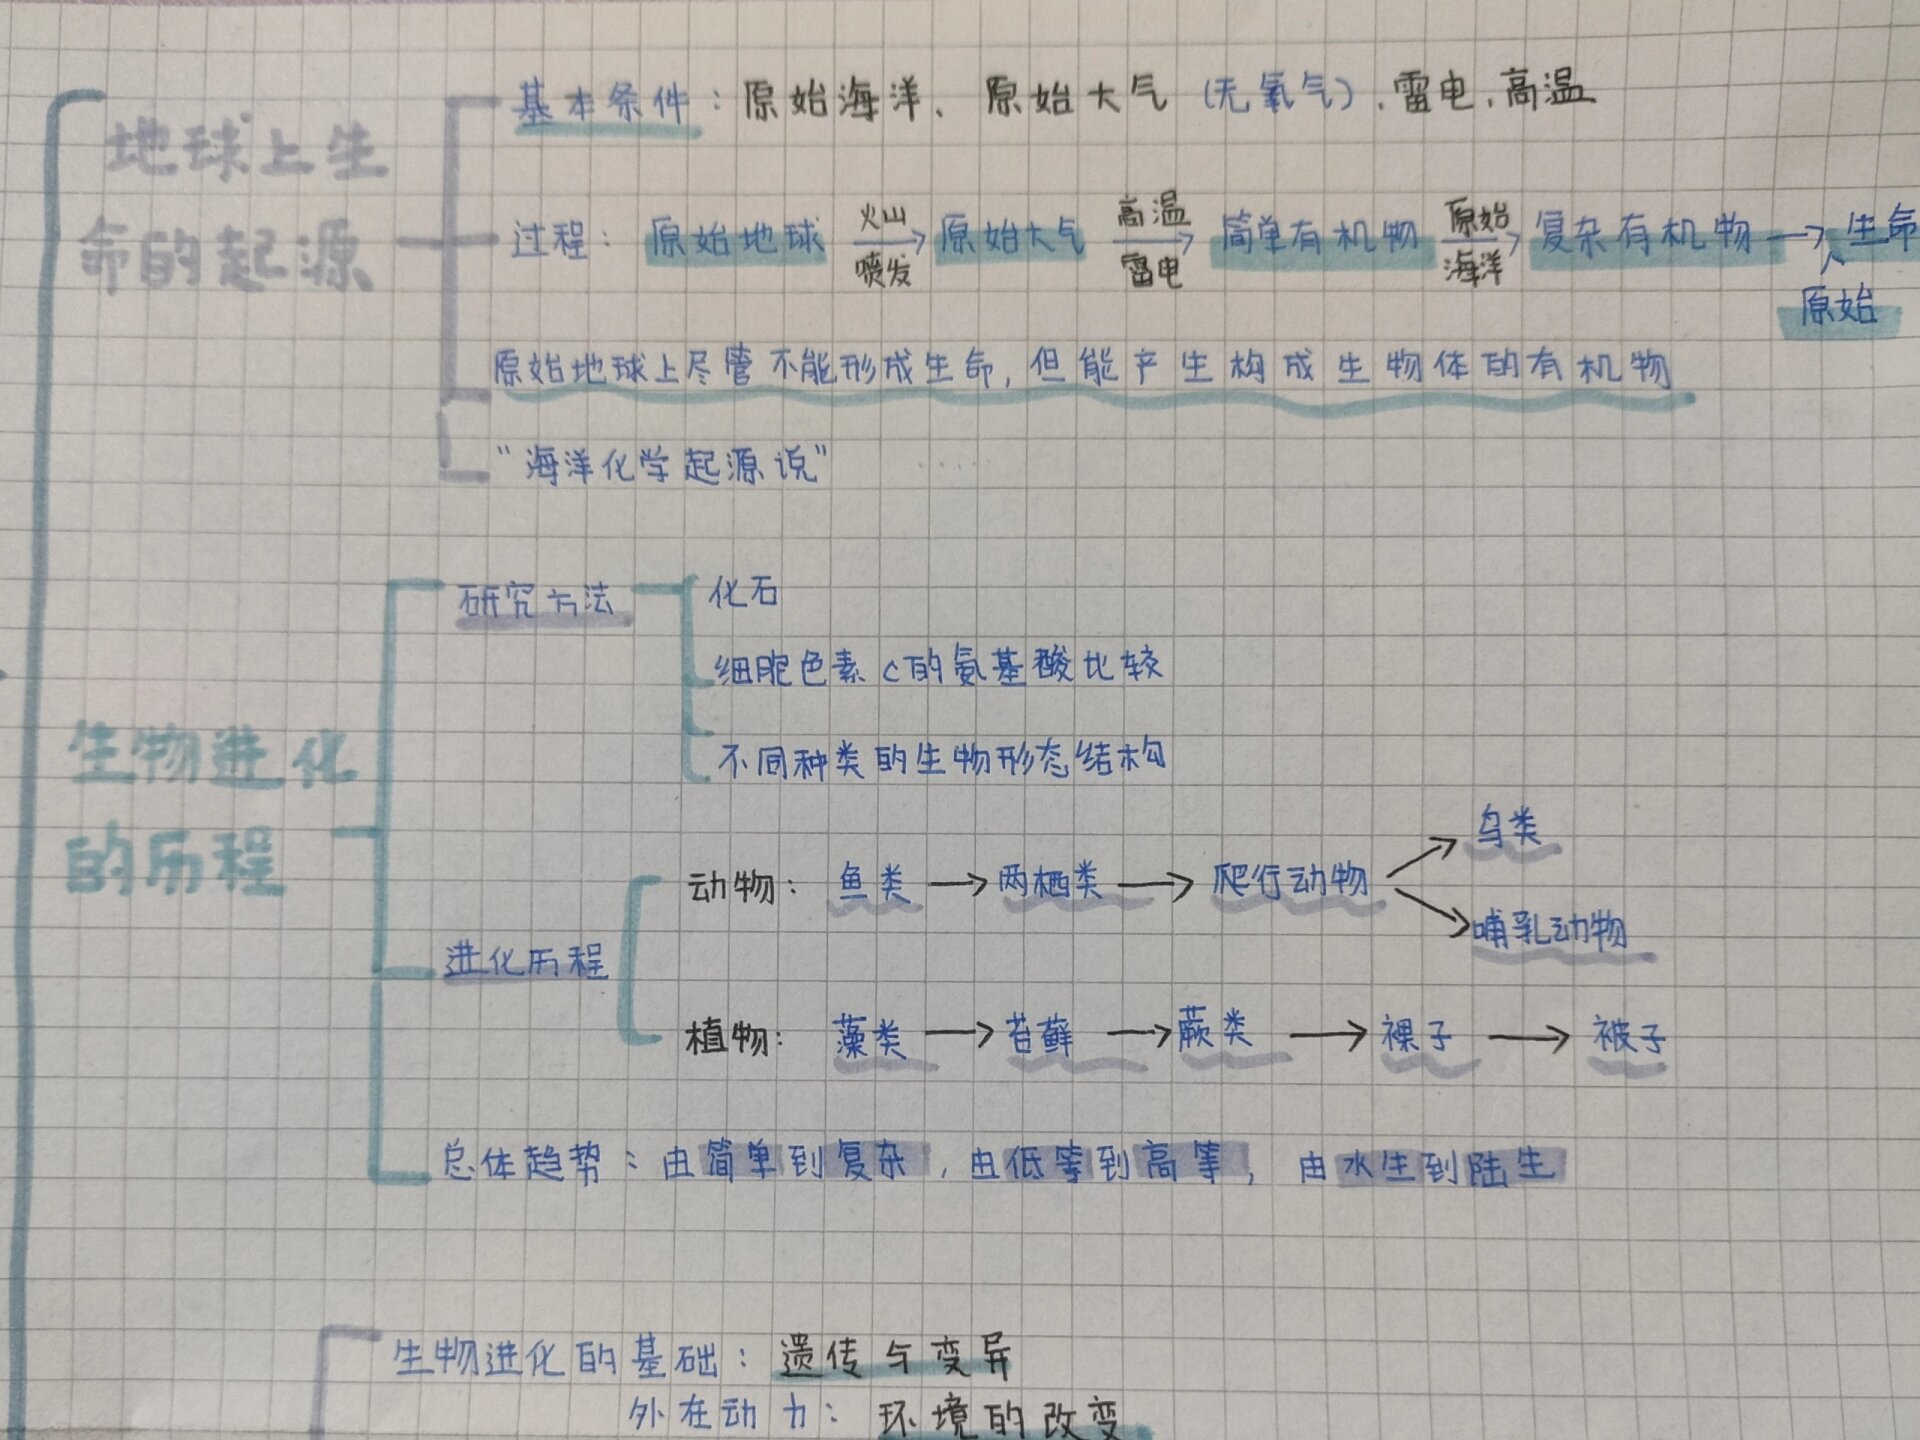 地球上生
命的起源
基本条件：原始海洋、原始大气（无氧气）、雷电、高温
过程：原始地球 火山 喷发 → 原始大气 高温 雷电 → 简单有机物 原始 海洋 → 复杂有机物 → 生命
原始
原始地球上尽管不能形成生命，但能产生构成生物体的有机物
"海洋化学起源说"
生物进化
的历程
研究方法
化石
细胞色素c的氨基酸比较
不同种类的生物形态结构
进化历程
动物：鱼类 → 两栖类 → 爬行动物
鸟类
哺乳动物
植物：藻类 → 苔藓 → 蕨类 → 裸子 → 被子
总体趋势：由简单到复杂，由低等到高等，由水生到陆生
生物进化的基础：遗传与变异
外在动力：环境的改变